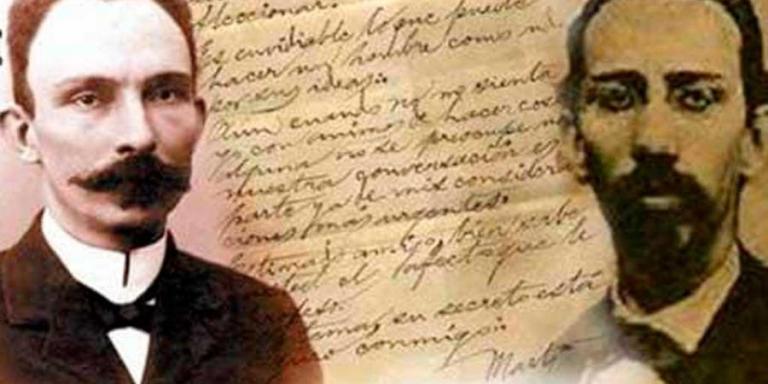 Aleccionar.
Es envidiable lo que puede
hacer un hombre como
por sus ideas.
Aun cuando no me sienta
con animos de hacer cosa
alguna no se preocupe
nuestra conversación es
parte ya de mis considera
ciones mas urgentes.
bien sabe
el afecto que le
su secreto está
conmigo.
Martí